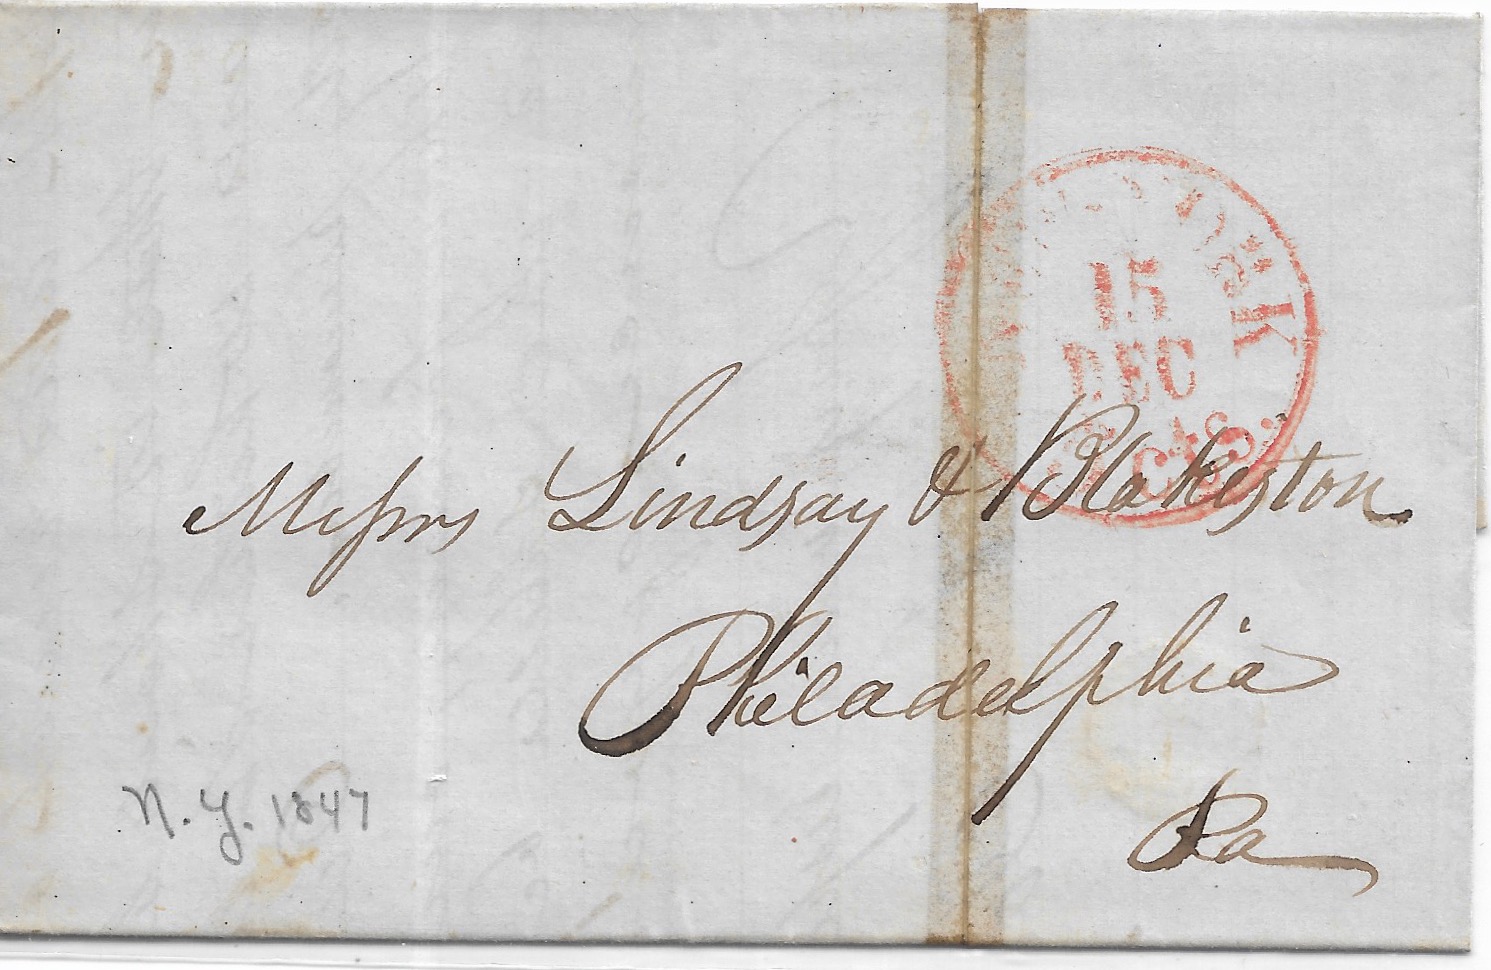 YORK
15
DEC
5 cts.
Messrs Lindsay & Blakiston
Philadelphia
Pa
N. Y. 1847